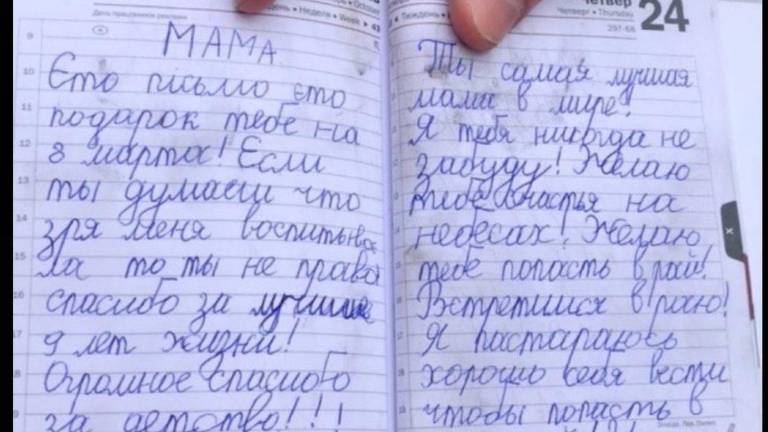 • Неделя • Week
МАМА
9
10 Єто пісьмо єто
11 подарок тебе на
12 8 марта! Если
13 ты думаеш что
14 зря меня воспитыва
15 ла то ты не права
16 спасибо за лучшие
17 9 лет жизни!
18 Огромное спасибо
за детство!!!
Тиждень •
Четвер
Четверг • Thursday
24
297-68
Ты самая лучшая
мама в мире!
Я тебя никогда не
забуду! Желаю
тебе счастья на
небесах! Желаю
тебе попасть в рай!
Встретимся в раю!
Я пастараюсь
хорошо себя вести
чтобы попасть в
x